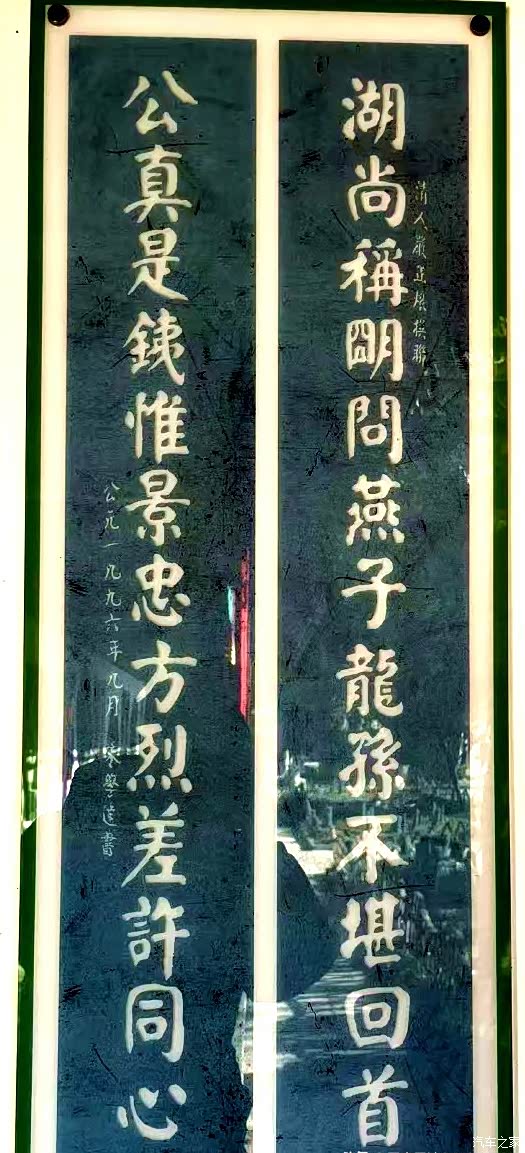 湖尚稱朙問燕子龍孫不堪回首
清人嚴正琅撰聯
公真是銕惟景忠方烈差許同心
公元一九九六年九月 學達書
汽车之家